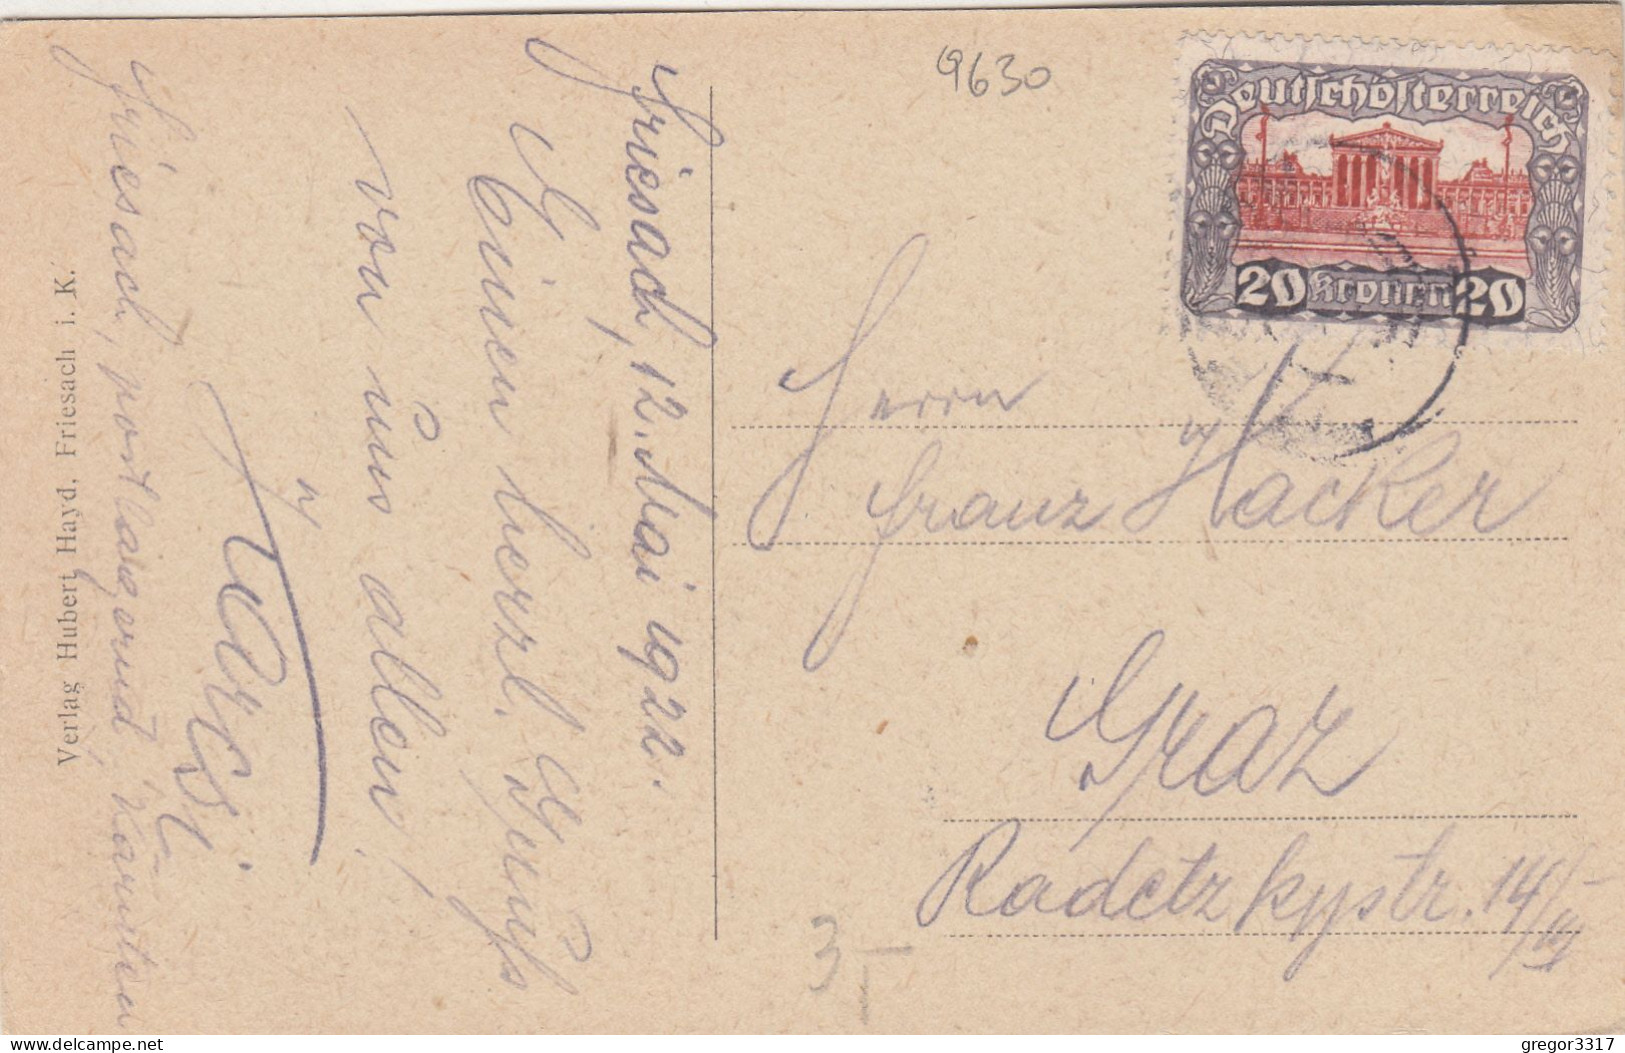 9630
Deutschösterreich
20 Kronen 20
Friesach, 12. Mai 1922.
Einen herzl. Gruß
von uns allen!
Friesach, postlagernd, Kärnten
Verlag Hubert Hayd, Friesach i. K.
Herrn
Franz Hacker
Graz
Radetzkystr. 14/III
3,-
gregor3317